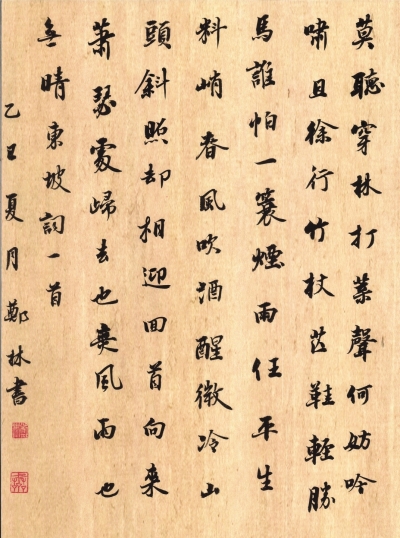 莫聽穿林打葉聲何妨吟
嘯且徐行竹杖芒鞋輕勝
馬誰怕一蓑煙雨任平生
料峭春風吹酒醒微冷山
頭斜照却相迎回首向來
蕭瑟處歸去也無風雨也
無晴東坡詞一首
乙巳夏月鄭林書